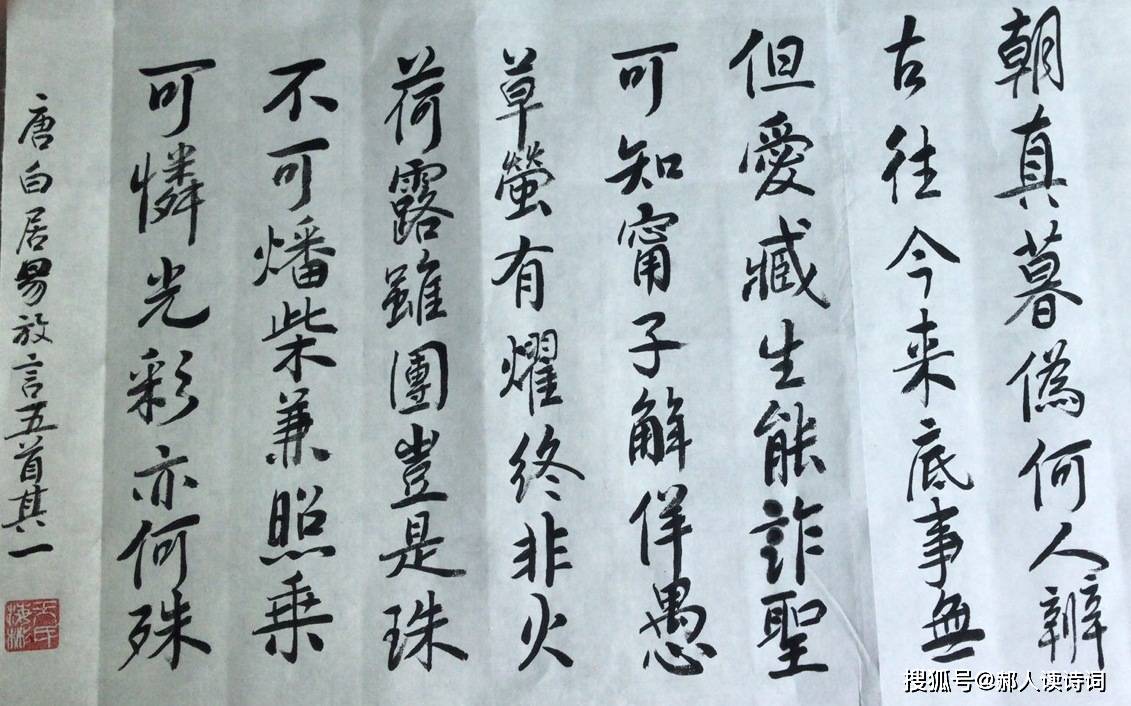 朝真暮偽何人辨
古往今来底事無
但愛臧生能詐聖
可知甯子解佯愚
草螢有耀终非火
荷露雖團豈是珠
不可燔柴兼照乗
可憐光彩亦何殊
唐白居易放言五首其一
搜狐号@郝人读诗词